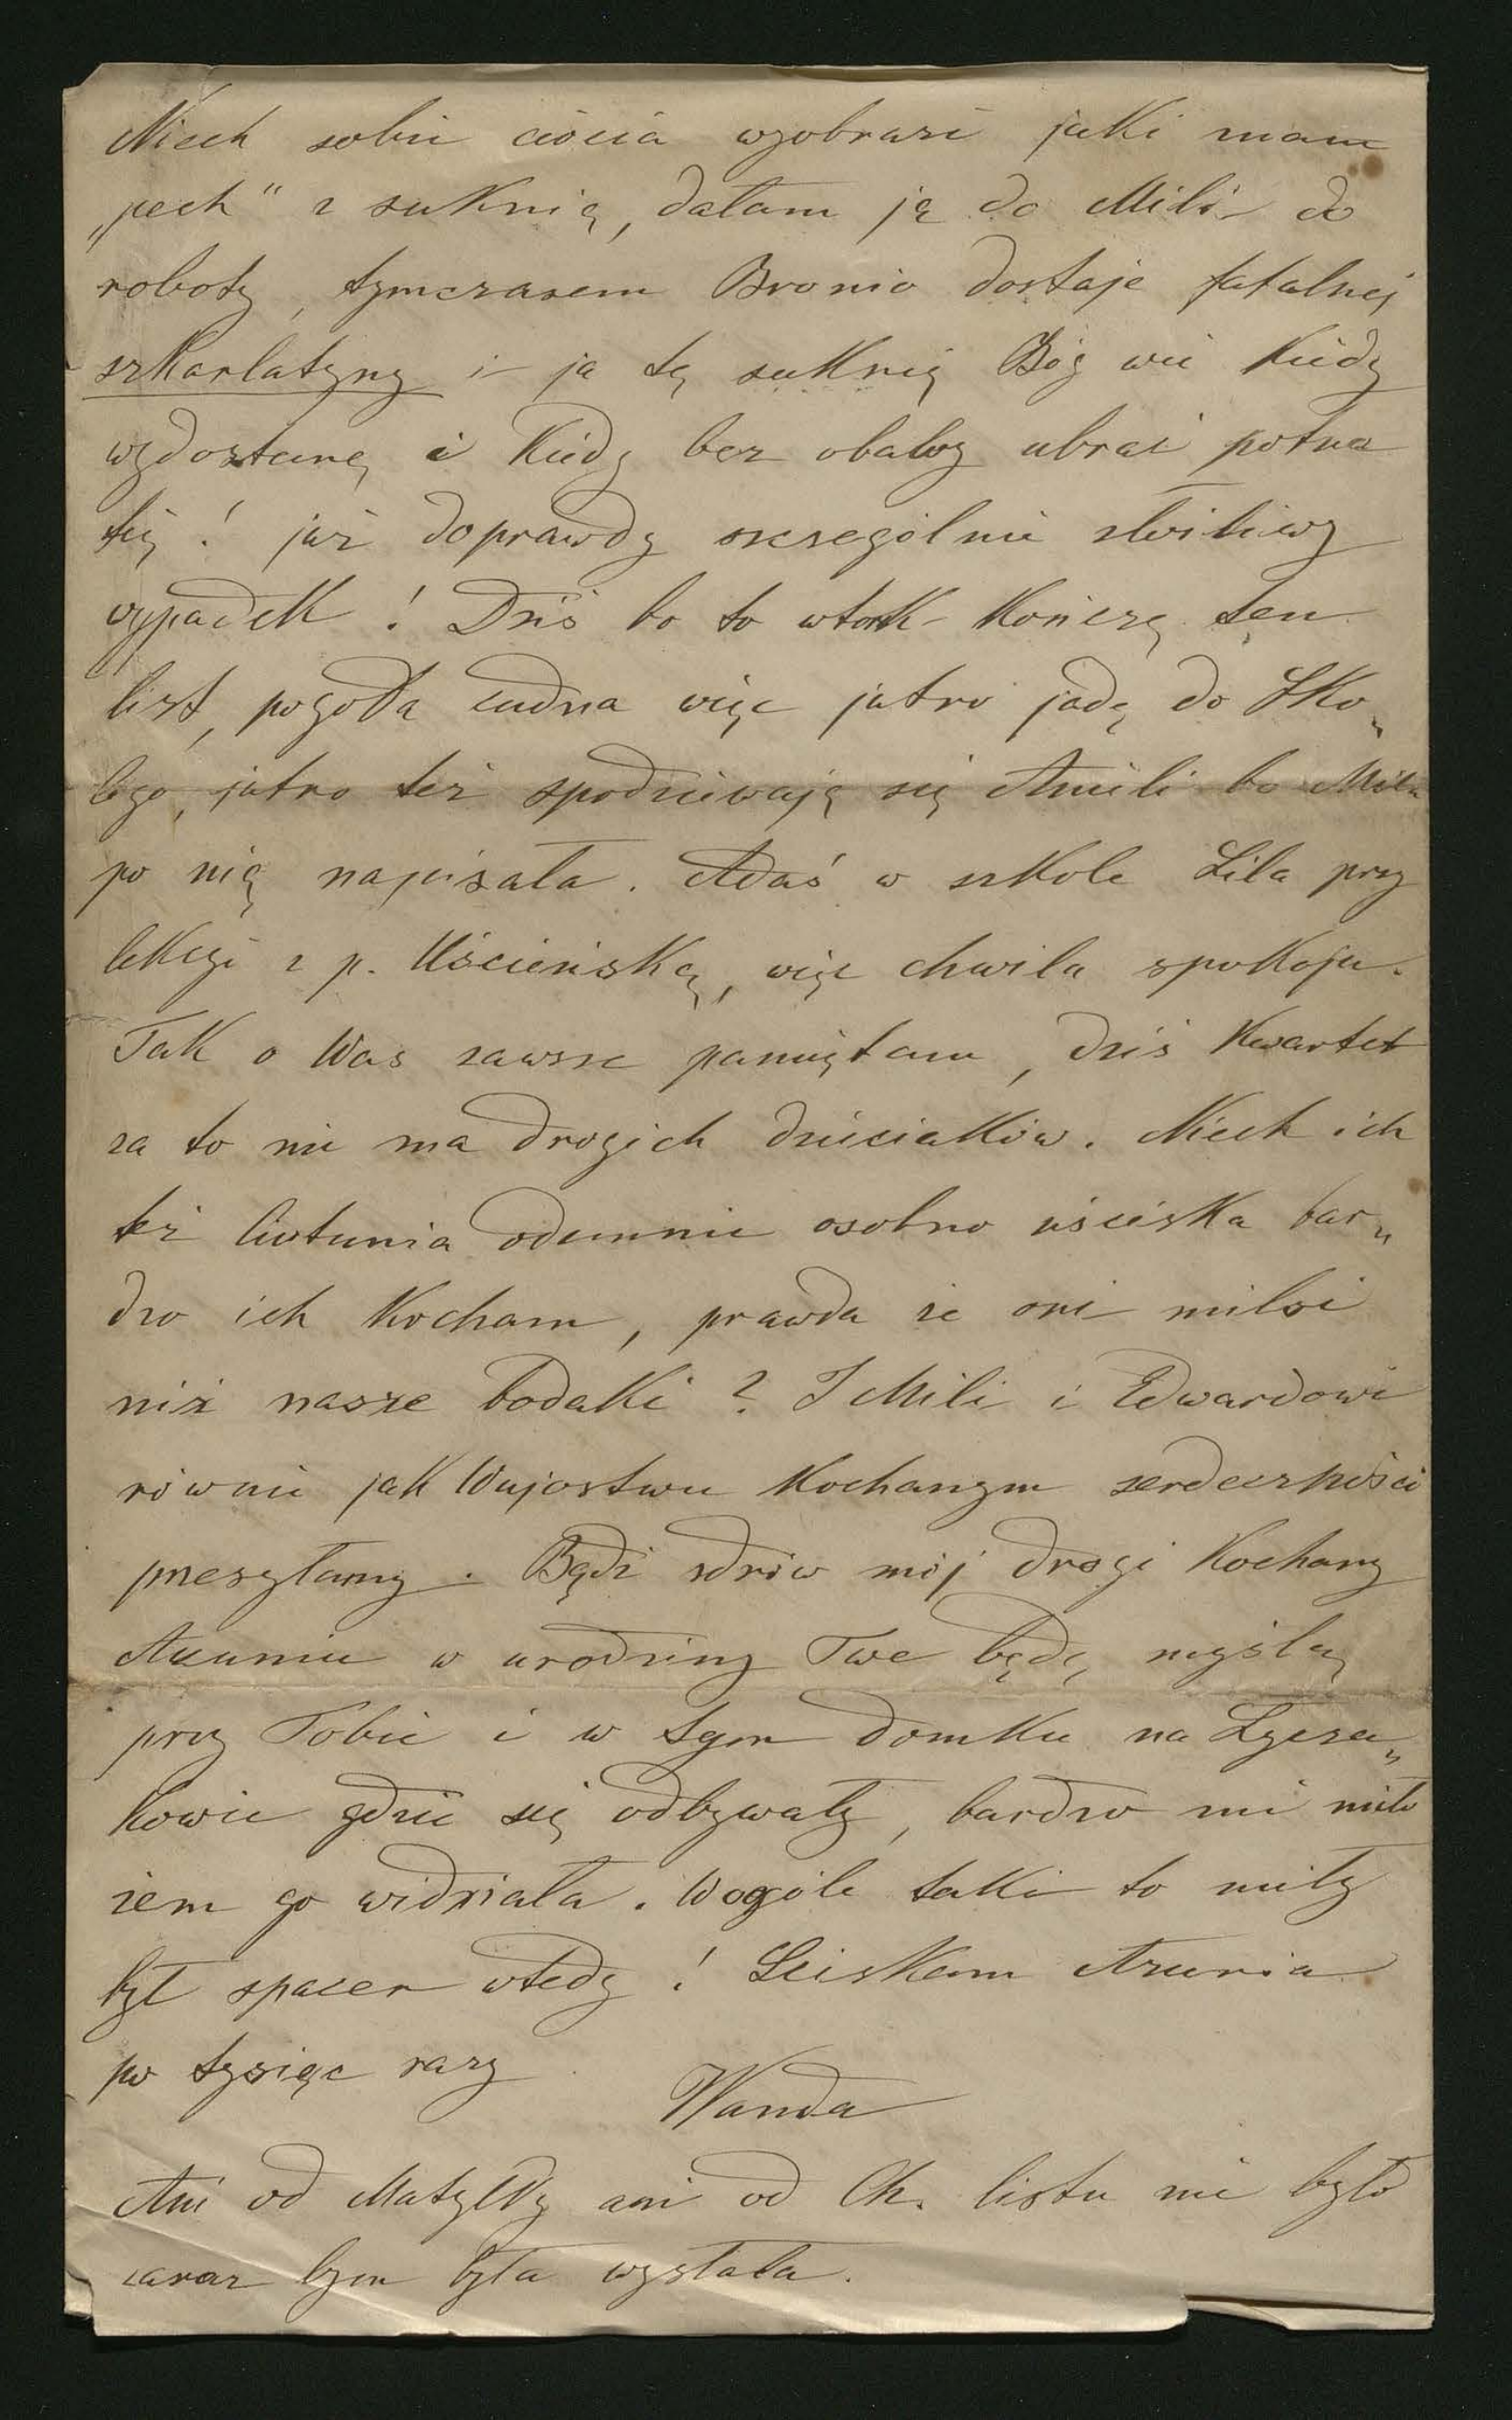 Niech sobie ciocia wyobrazi jaki mam
„pech" z suknią, dałam ją do Mili do
roboty, tymczasem Bronio dostaje fatalnej
szkarlatyny i ja tę suknię Bóg wie kiedy
wydostanę i kiedy bez obawy ubrać potra
fię! już doprawdy szczególnie złośliwy
wypadek! Dziś bo to wtorek kończę ten
list, pogoda cudna więc jutro jadę do Sko„
lego, jutro też spodziewają się Anieli bo Mila
po nią napisała. Adaś w szkole Lila przy
lekcyi z p. Uścieńską, więc chwila spokoju.
Tak o Was zawsze pamiętam, dziś Kwartet
za to nie ma drogich dzieciaków. Niech ich
też Ciotunia odemnie osobno uściska bar„
dzo ich kocham, prawda że oni milsi
niż nasze bodaki? I Mili i Edwardowi
równie jak Wujostwu kochanym serdeczności
przesyłamy. Bądź zdrów mój drogi kochany
Azuniu w urodziny Twe będę myślą
przy Tobie i w tym domku na Łycza„
kowie gdzie się odbywały, bardzo mi miło
żem go widziała. Wogóle taki to miły
był spacer wtedy! Sciskam Azunia
po tysiąc razy
Wanda
Ani od Matyldy ani od Ch. listu nie było
zaraz bym była wysłała.